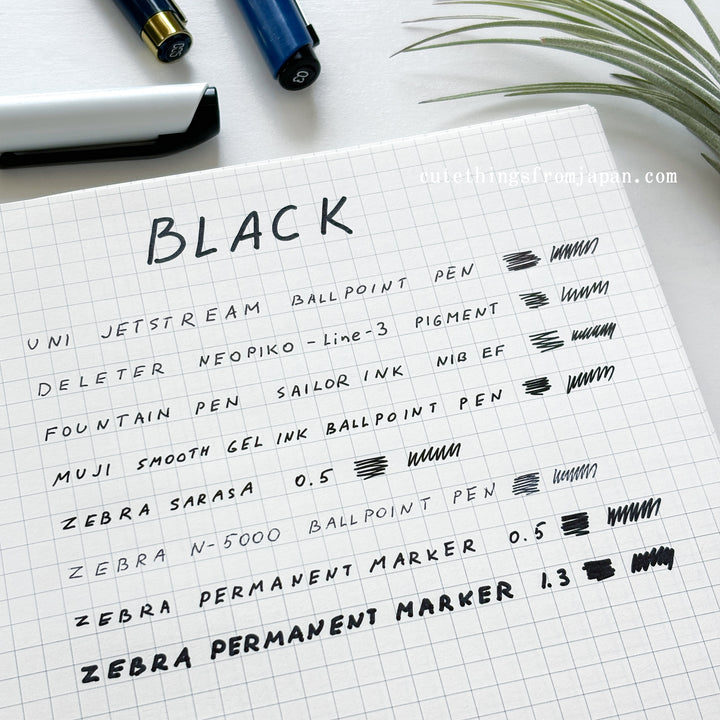 035
03
cutethingsfromjapan.com
BLACK
UNI JETSTREAM BALLPOINT PEN
DELETER NEOPIKO-Line-3 PIGMENT
FOUNTAIN PEN SAILOR INK NIB EF
MUJI SMOOTH GEL INK BALLPOINT PEN
ZEBRA SARASA 0.5
ZEBRA N-5000 BALLPOINT PEN
ZEBRA PERMANENT MARKER 0.5
ZEBRA PERMANENT MARKER 1.3